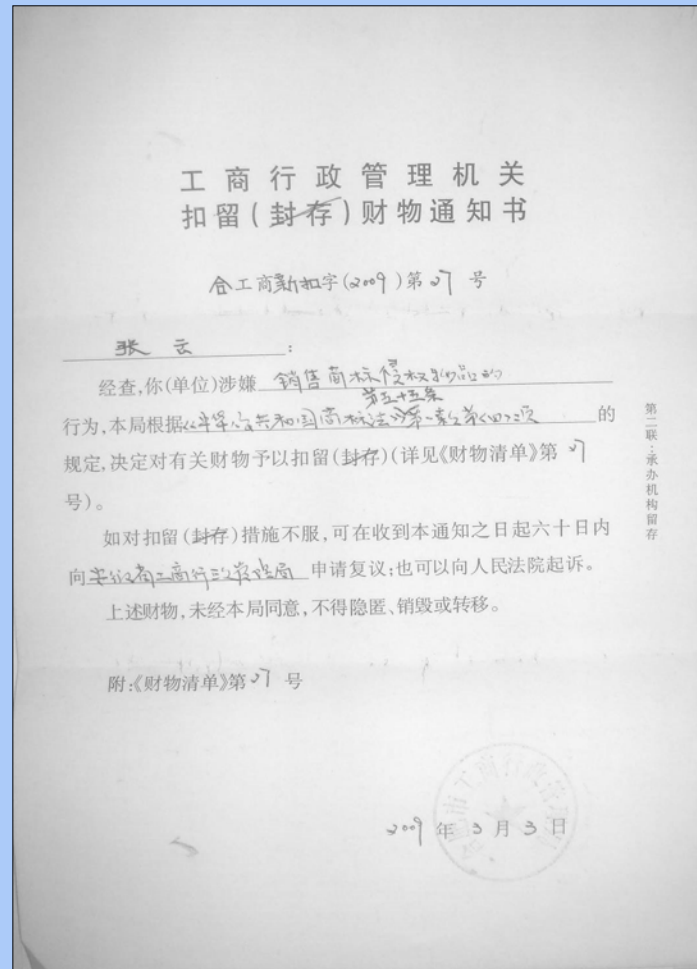 工商行政管理机关
扣留(封存)财物通知书
合工商新扣字(2009)第27号
张云:
经查,你(单位)涉嫌 销售商标侵权物品的
第五十五条
行为,本局根据《中华人民共和国商标法》第一款第(四)项 的
规定,决定对有关财物予以扣留(封存)(详见《财物清单》第27
号)。
如对扣留(封存)措施不服,可在收到本通知之日起六十日内
向安徽省工商行政管理局 申请复议;也可以向人民法院起诉。
上述财物,未经本局同意,不得隐匿、销毁或转移。
附:《财物清单》第27号
2009年3月3日
第二联:承办机构留存